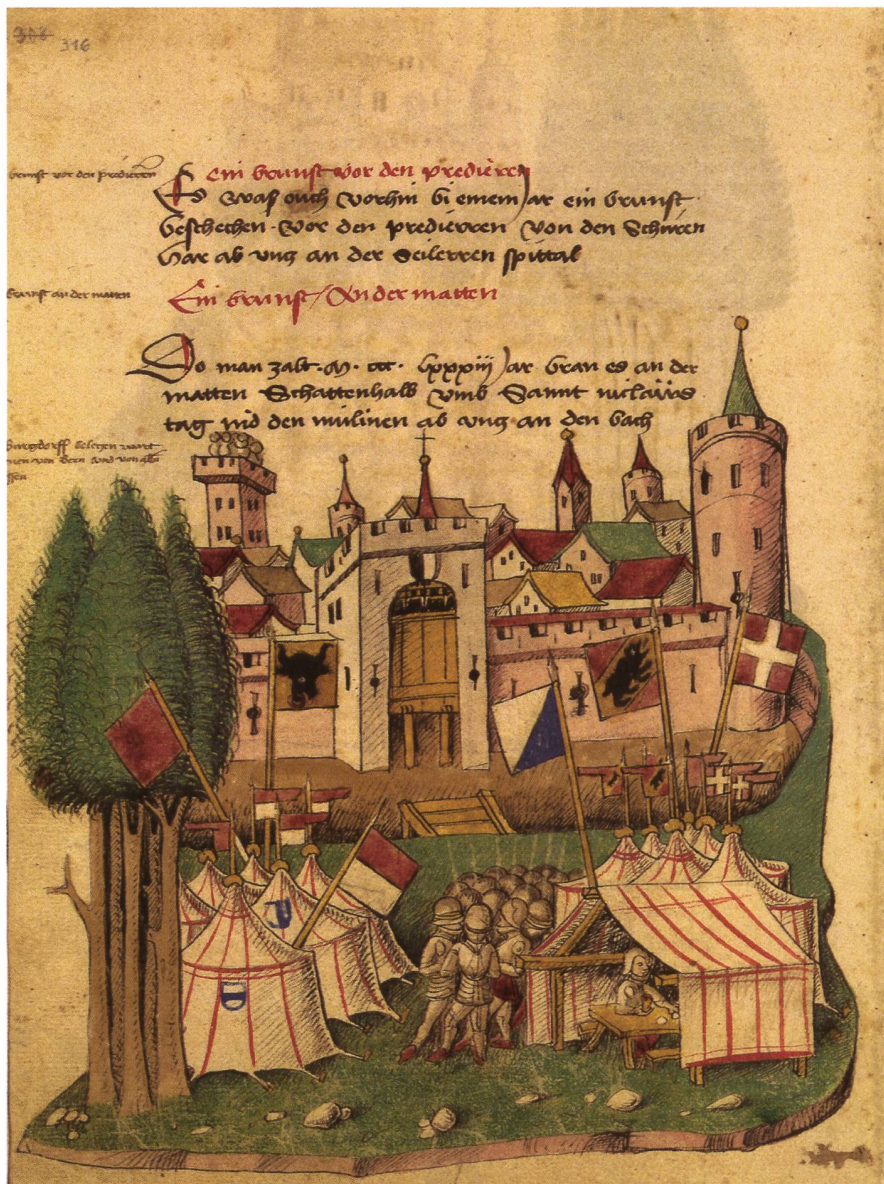 308 316
brunst vor den predierren
Ein brunst vor den predierren
Es was ouch vorhin bi einem jar ein brunst
beschechen vor den predierren von den Schüren
har ab untz an der Seilerren spittal
brunst an der matten
Ein brunst / An der matten
Do man zalt · M · ccc · lxxxiij jar bran es an der
matten Schattenhalb umb Sannt niclaus
tag nid den mülinen ab untz an den bach
Burgdorff belegen wart
von von bern und von